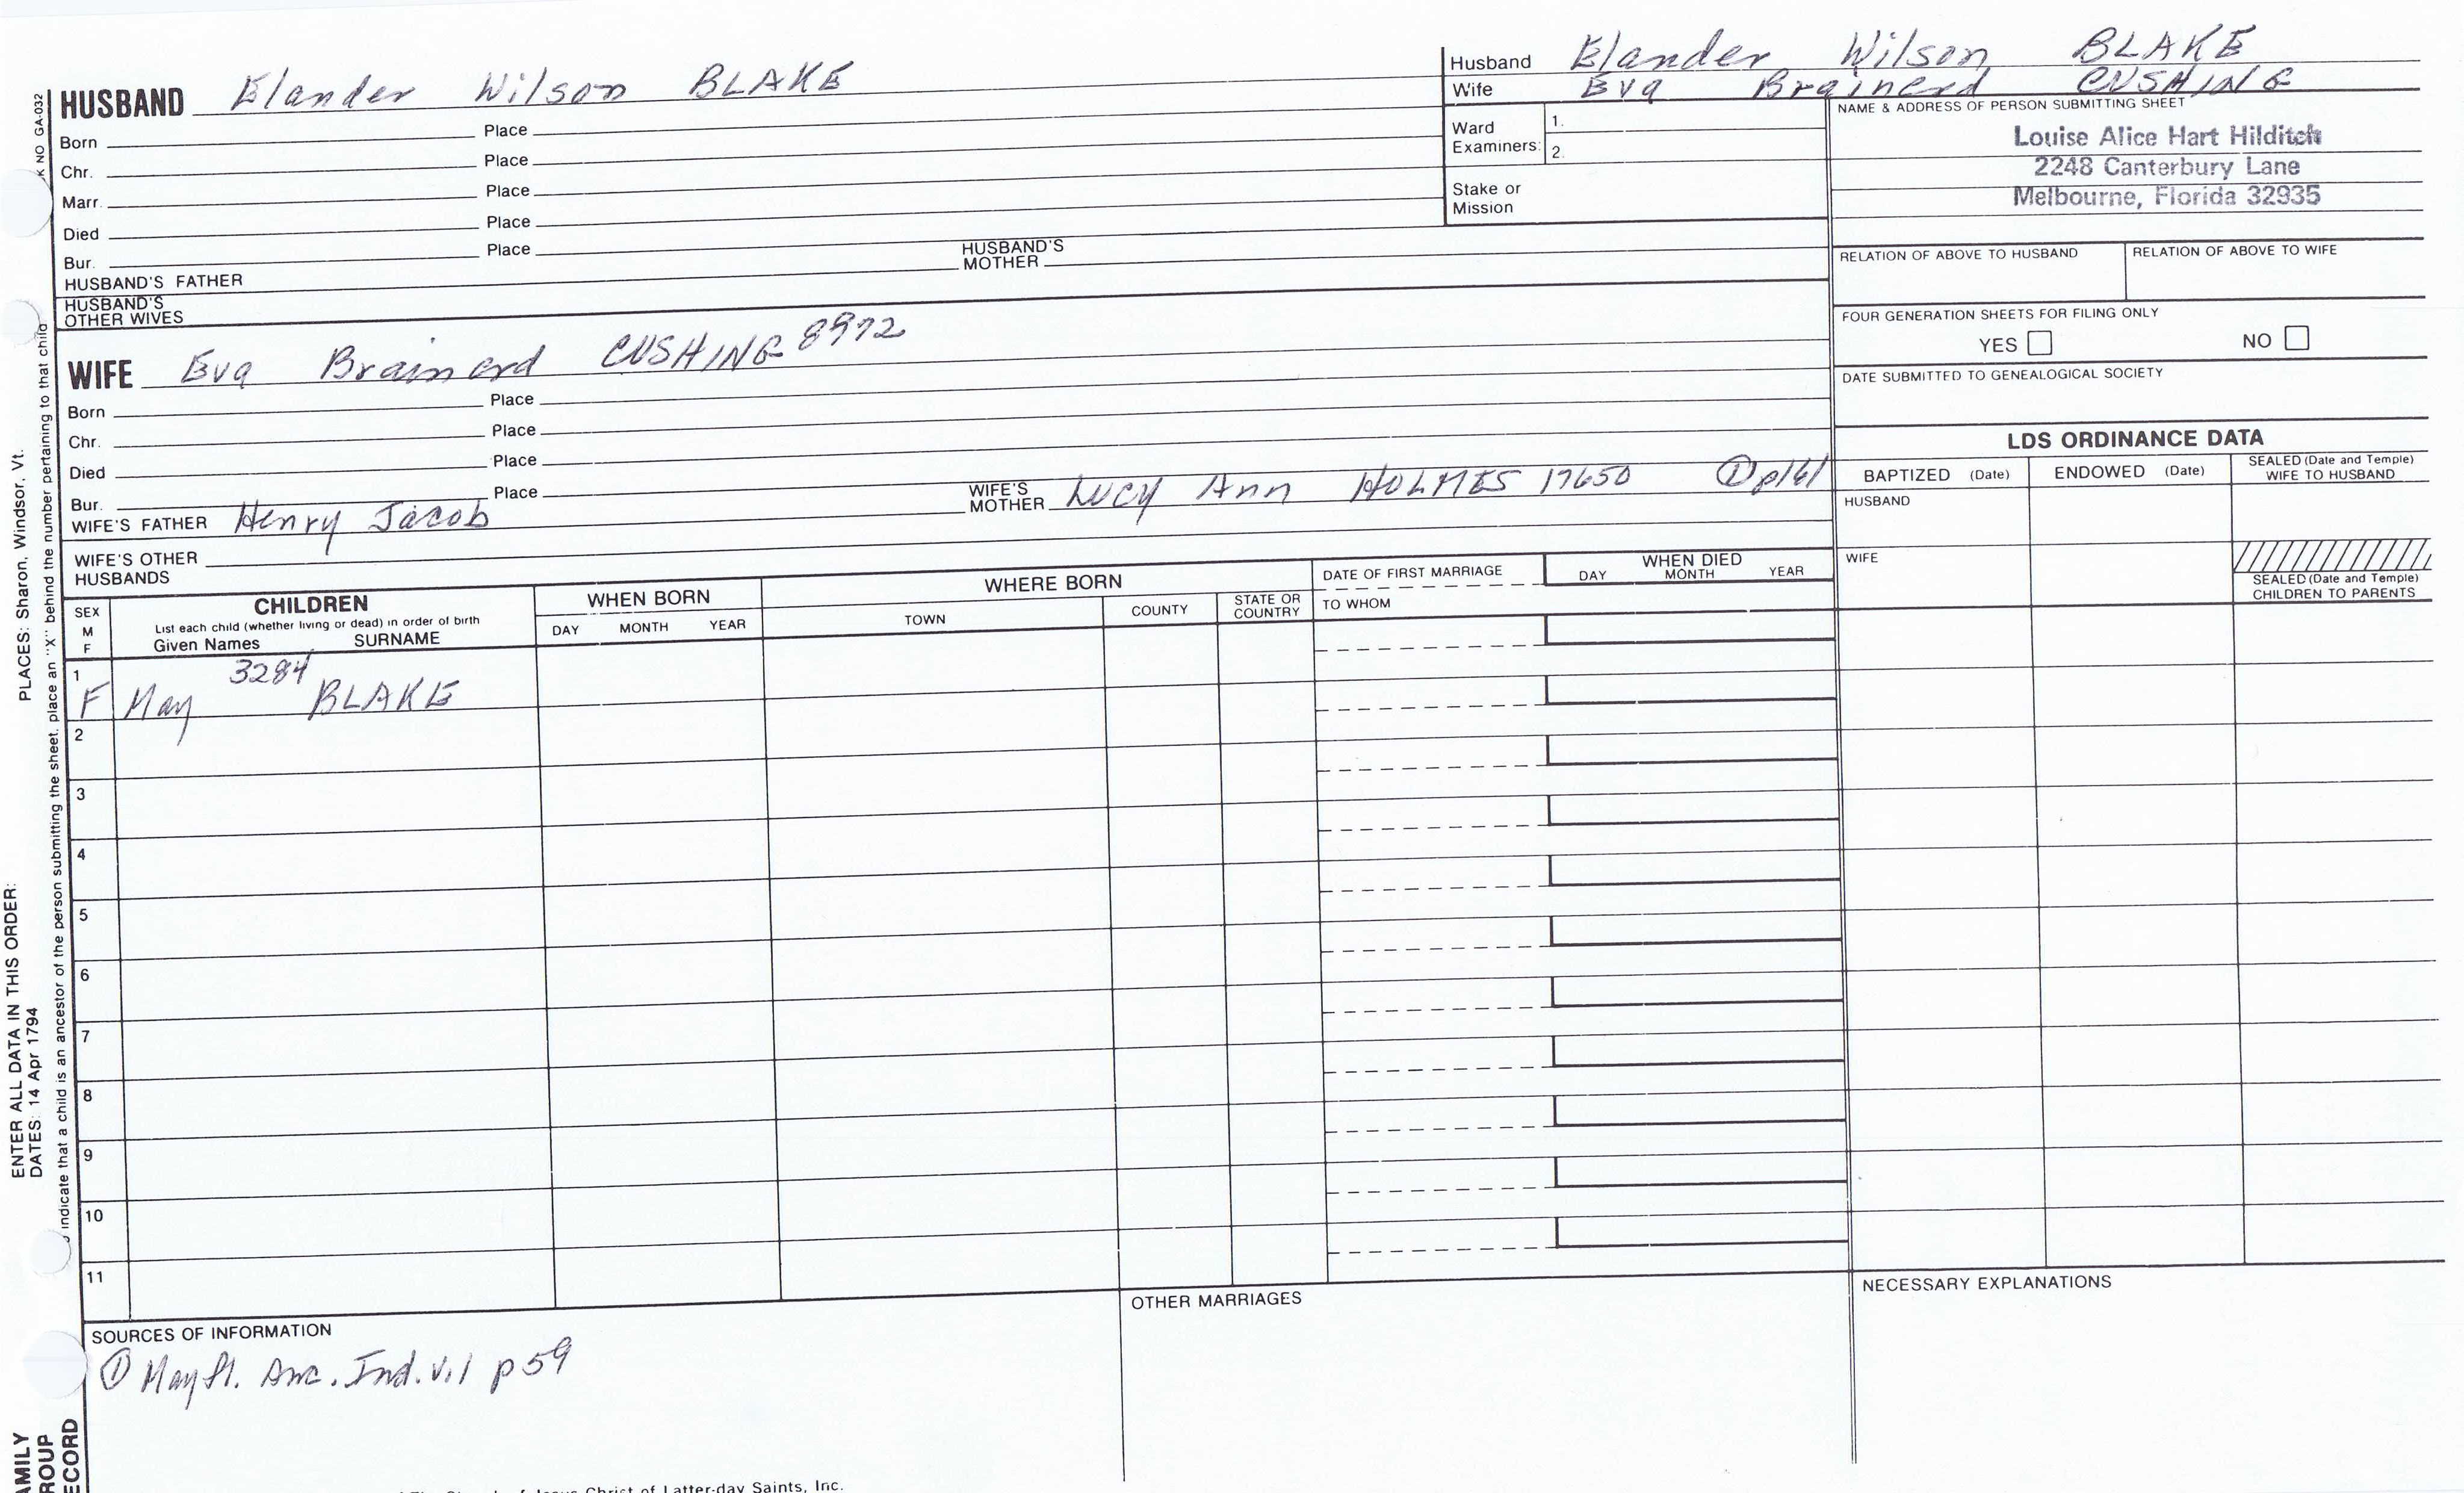 HUSBAND Elander Wilson BLAKE
Born Place
Chr. Place
Marr. Place
Died Place
Bur. Place
HUSBAND'S FATHER HUSBAND'S MOTHER
HUSBAND'S OTHER WIVES
WIFE Eva Brainerd CUSHING 8972
Born Place
Chr. Place
Died Place
Bur. Place
WIFE'S FATHER Henry Jacob WIFE'S MOTHER Lucy Ann HOLMES 17650 ① p161
WIFE'S OTHER HUSBANDS
Husband Elander Wilson BLAKE
Wife Eva Brainerd CUSHING
Ward Examiners: 1.
2.
Stake or Mission
NAME & ADDRESS OF PERSON SUBMITTING SHEET
Louise Alice Hart Hilditch
2248 Canterbury Lane
Melbourne, Florida 32935
RELATION OF ABOVE TO HUSBAND RELATION OF ABOVE TO WIFE
FOUR GENERATION SHEETS FOR FILING ONLY
YES NO
DATE SUBMITTED TO GENEALOGICAL SOCIETY
LDS ORDINANCE DATA
BAPTIZED (Date) ENDOWED (Date) SEALED (Date and Temple) WIFE TO HUSBAND
HUSBAND
WIFE
SEALED (Date and Temple)
CHILDREN TO PARENTS
SEX M F
CHILDREN
List each child (whether living or dead) in order of birth
Given Names SURNAME
WHEN BORN
DAY MONTH YEAR
WHERE BORN
TOWN COUNTY STATE OR COUNTRY
DATE OF FIRST MARRIAGE
TO WHOM
WHEN DIED
DAY MONTH YEAR
1 3284
F May BLAKE
2
3
4
5
6
7
8
9
10
11
SOURCES OF INFORMATION
① Mayfl. Anc. Ind. v.1 p 59
OTHER MARRIAGES
NECESSARY EXPLANATIONS
Jesus Christ of Latter-day Saints, Inc.
K NO GA-032
PLACES: Sharon, Windsor, Vt.
ENTER ALL DATA IN THIS ORDER:
DATES: 14 Apr 1794
indicate that a child is an ancestor of the person submitting the sheet, place an "X" behind the number pertaining to that child
AMILY
ROUP
ECORD